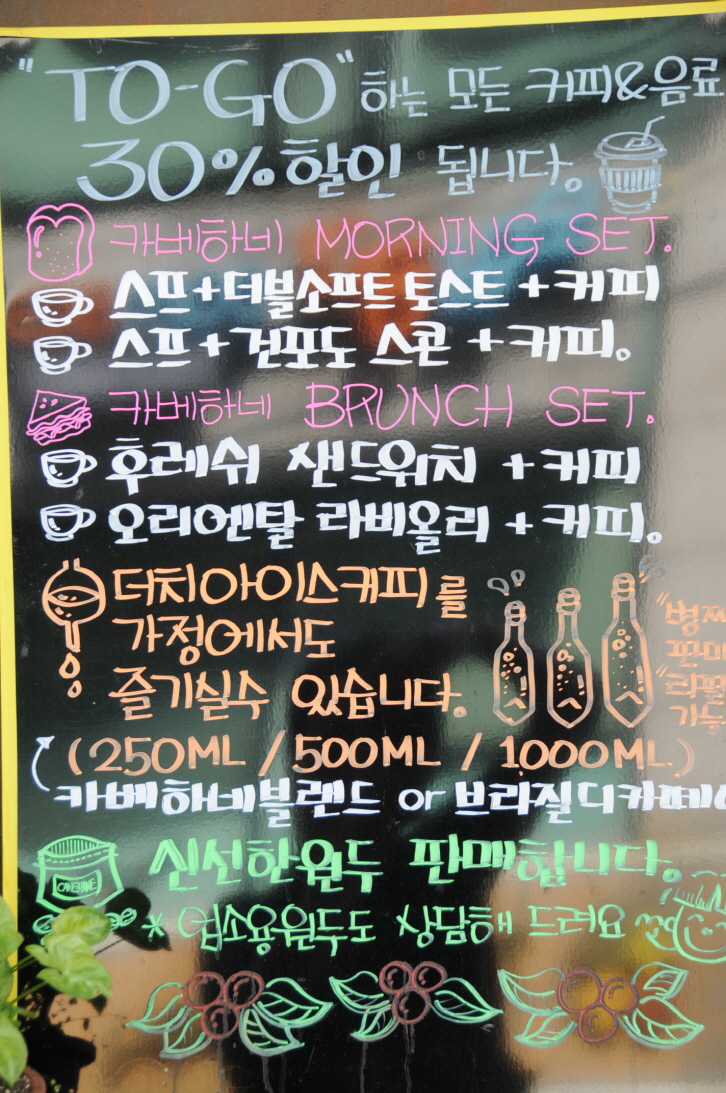 "TO-GO" 하는 모든 커피&음료
30% 할인 됩니다.
카베하네 MORNING SET.
스프+더블소프트토스트+커피
스프+건포도 스콘 +커피.
카베하네 BRUNCH SET.
후레쉬 샌드위치 +커피
오리엔탈 라비올리+커피.
더치아이스커피를
가정에서도
즐기실수 있습니다.
"병째
판매
"리필
가능
(250ML / 500ML / 1000ML)
카베하네블렌드 or 브라질디카페
신선한원두 판매합니다.
* 업소용원두도 상담해 드려요